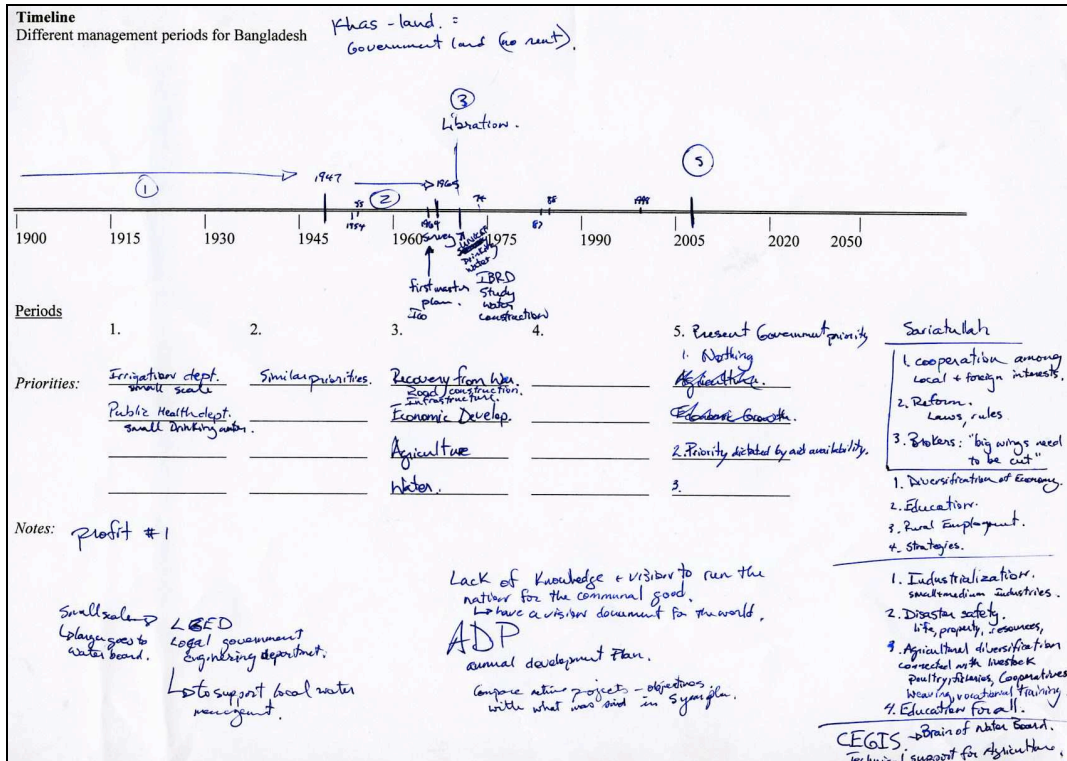 Timeline
Different management periods for Bangladesh
Khas-land. =
Government land (no rent).
3
Libration.
5
1
1947
2
1965
55
74
88
1998
1954
1964
71
87
1900
1915
1930
1945
1960
1975
1990
2005
2020
2050
survey
Drinking
water
first master
plan.
Ico
IBRD
study
water
construction
Periods
1.
2.
3.
4.
5. Present Government priority
1. Nothing
Priorities:
Irrigation dept.
small scale
Public Health dept.
small Drinking water.
Similar priorities.
Recovery from War.
Road construction.
Infrastructure.
Economic Develop.
Agriculture
Water.
Agriculture.
Economic Growth.
2. Priority dictated by aid availability.
3.
Sariatullah
1. cooperation among
Local + foreign interests.
2. Reform.
Laws, rules
3. Brokers: "big wings need
to be cut"
1. Diversification of Economy.
2. Education.
3. Rural Employment.
4. Strategies.
1. Industrialization.
small-medium industries.
2. Disaster safety.
life, property, resources,
3. Agricultural diversification
connected with livestock
poultry, fisheries, Cooperatives
Weaving, vocational training.
4. Education for all.
CEGIS. → Brain of Water Board.
Technical support for Agriculture.
Notes:
profit #1
Small scale
↳ larger goes to
Water board.
LGED
Local government
Engineering department.
↳ to support local water
management.
Lack of Knowledge + vision to run the
nation for the communal good.
↳ have a vision document for the world.
ADP
annual development Plan.
Compare active projects - objectives
with what was said in 5 year plan.